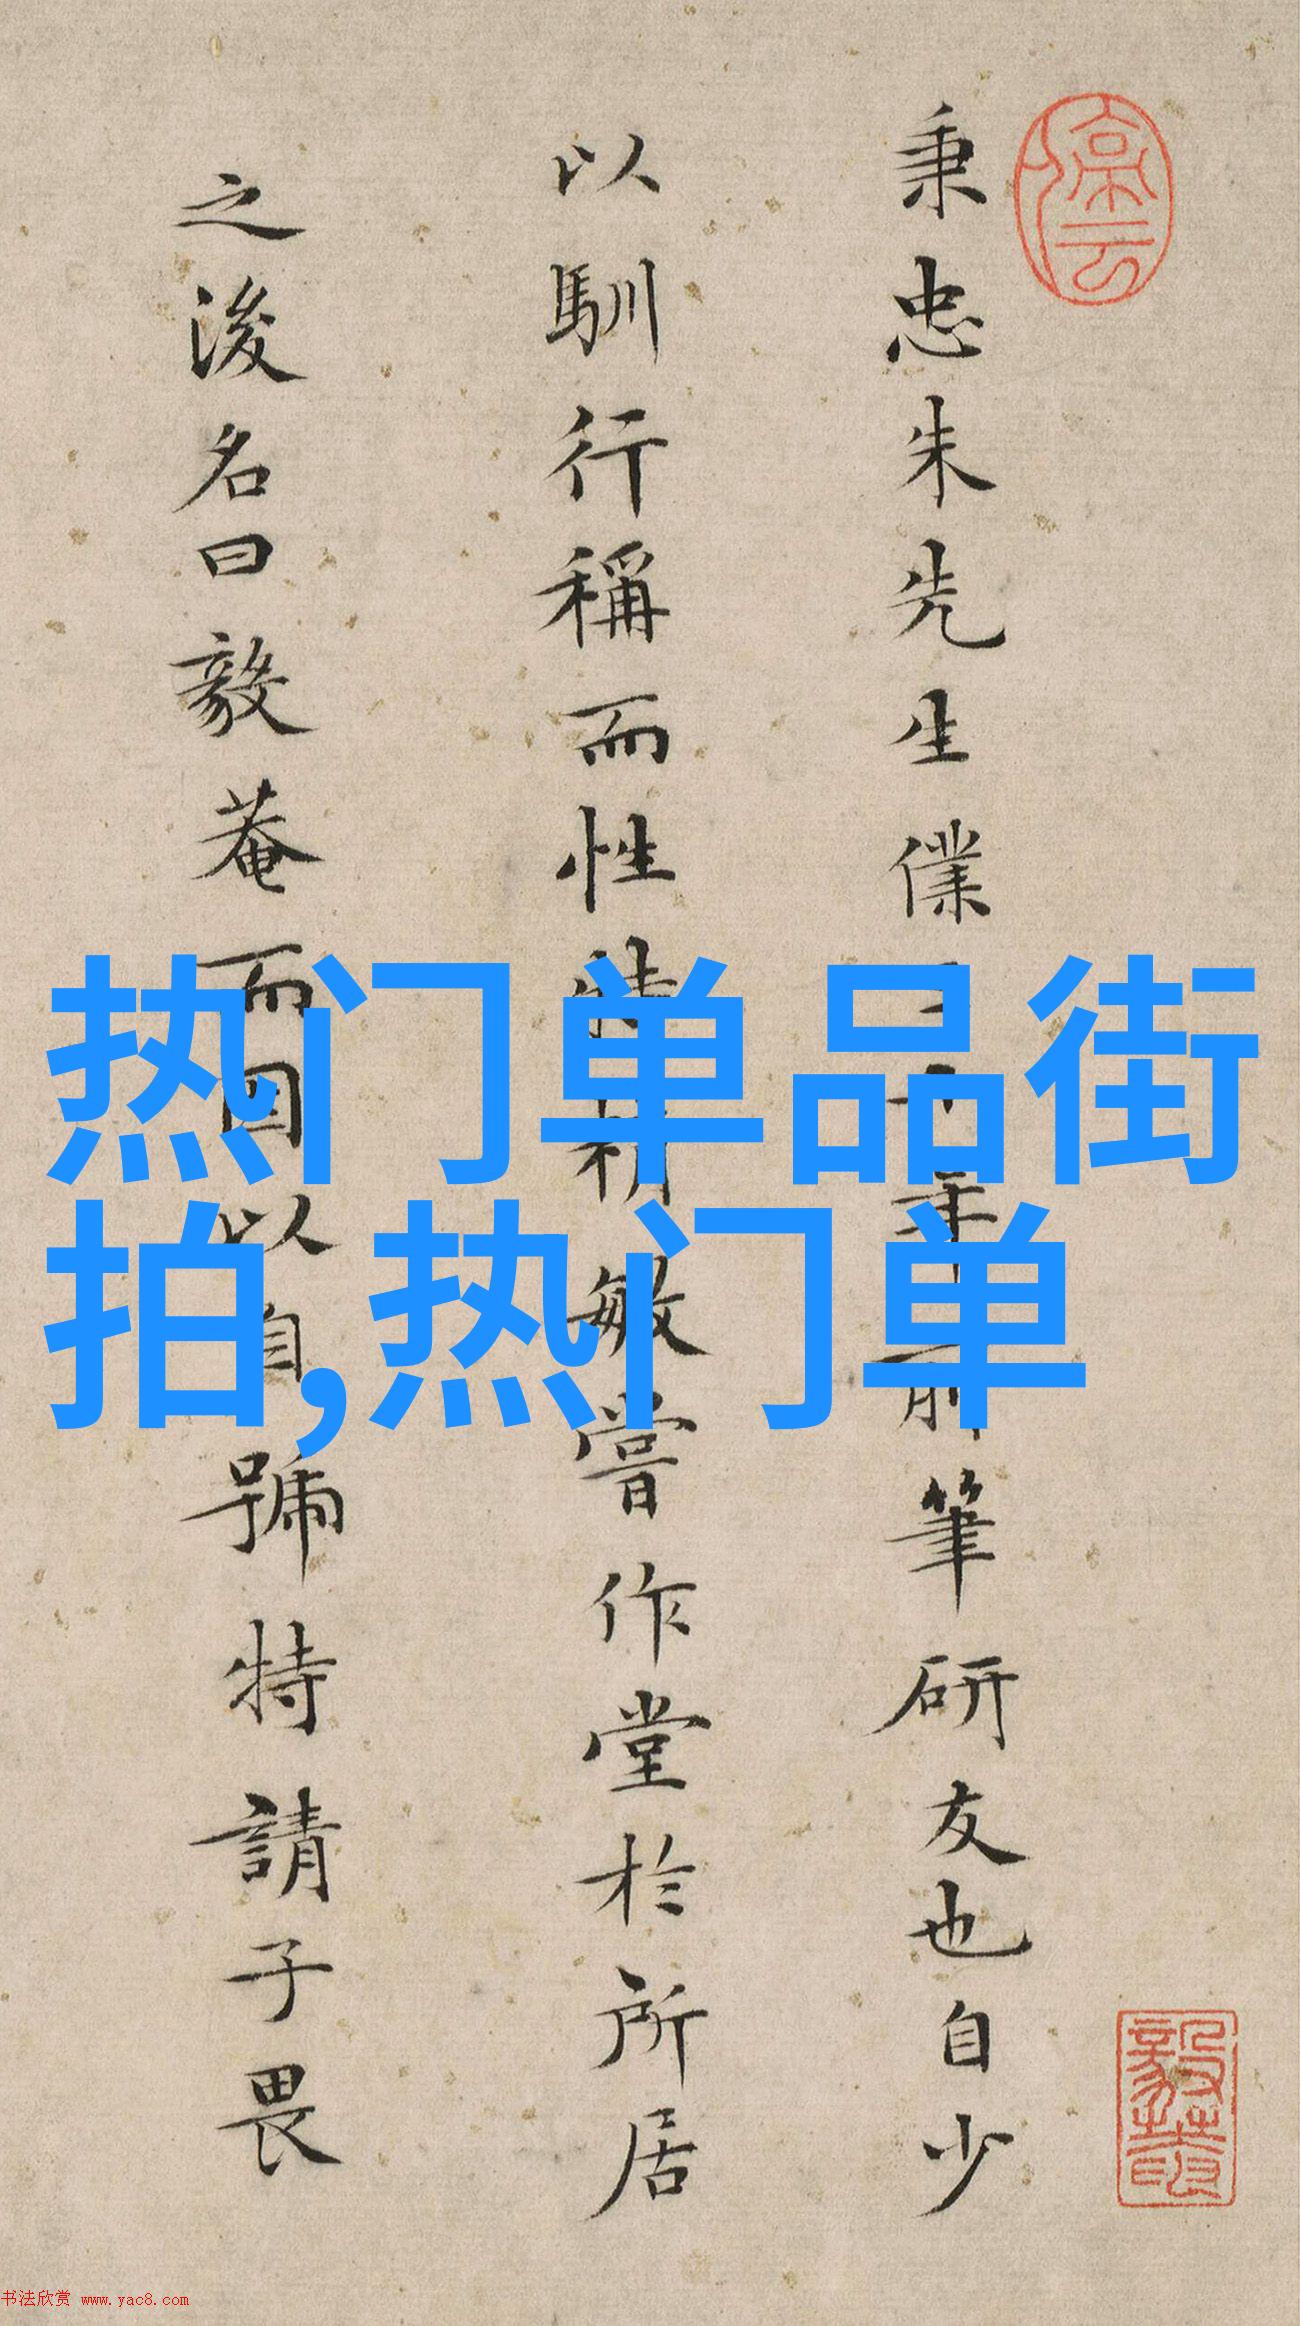 秉忠朱先生僕二十年前筆研友也自少
以馴行稱而性特精敏嘗作堂於所居
之後名曰毅菴而因以自號特請子畏
熱门单品街
拍,热门单
书法欣赏 www.yac8.com